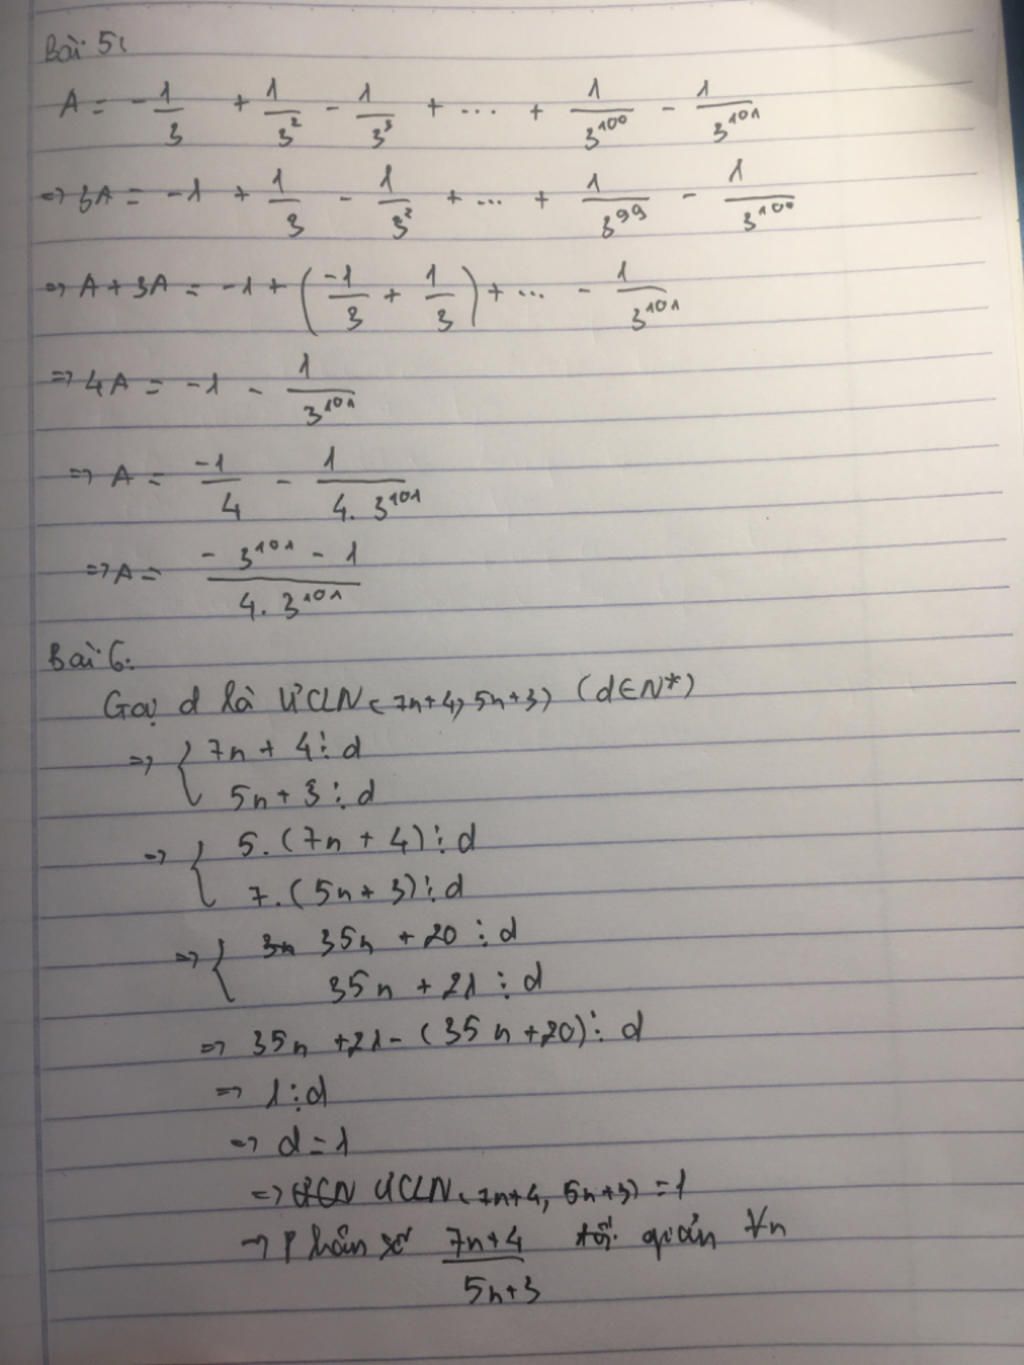 Bài 5:
A = -1/3 + 1/3² - 1/3³ + ... + 1/3¹⁰⁰ - 1/3¹⁰¹
=> 3A = -1 + 1/3 - 1/3² + ... + 1/3⁹⁹ - 1/3¹⁰⁰
=> A + 3A = -1 + (-1/3 + 1/3) + ... - 1/3¹⁰¹
=> 4A = -1 - 1/3¹⁰¹
=> A = -1/4 - 1/4.3¹⁰¹
=> A = -3¹⁰¹ - 1/4.3¹⁰¹
Bài 6:
Gọi d là ƯCLN(7n+4, 5n+3) (d∈N*)
=> { 7n + 4 ⋮ d
5n + 3 ⋮ d
=> { 5.(7n + 4) ⋮ d
7.(5n + 3) ⋮ d
=> { 35n + 20 ⋮ d
35n + 21 ⋮ d
=> 35n + 21 - (35n + 20) ⋮ d
=> 1 ⋮ d
=> d = 1
=> ƯCLN(7n+4, 5n+3) = 1
=> Phân số 7n+4/5n+3 tối giản ∀n